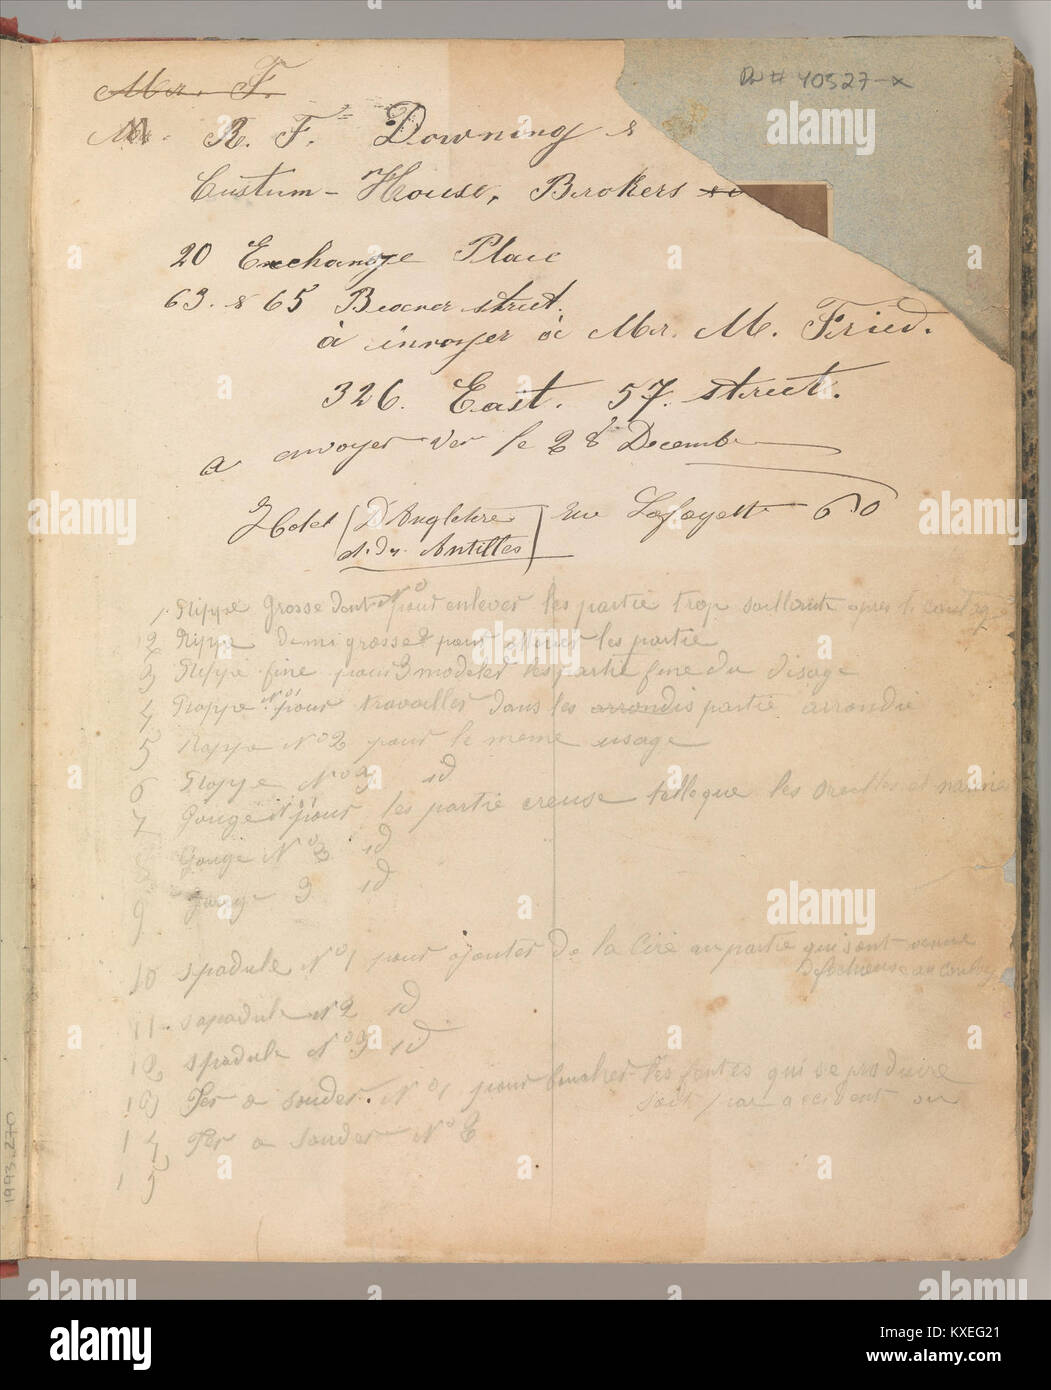 DW # 40527-x
Mr. F.
Mr. R. F. Downing &
Custum-House, Brokers
20 Exchange Place
63. & 65 Beaver street.
à invoyer à Mr. M. Fried.
326. East. 57. street.
a envoyer ver le 28 Decemb
Hotel (D'Angleterre) rue Lafayette 60
et des Antilles
1 Rippe grosse dont No pour enlever les partie trop saillante apres le coulage
2 Rippe demi grosse pour les partie
3 Rippe fine pour modeler les partie fine du visage
4 Rappe No1 pour travailler dans les arrondis partie arrondie
5 Rappe No2 pour le meme usage
6 Rappe No3 id
7 Gouge No1 pour les partie creuse telle que les oreilles et narine
8 Gouge No 3 id
9 gouge 3 id
10 spadule No1 pour ajouter de la Cire au partie qui sont venue
defectueuse au
11 sapadule No2 id
12 spadule No3 id
13 Fer a souder. No1 pour boucher les fentes qui se produire
soit par accident ou
14 Fer a souder No2
15
1993.270
alamy
KXEG21
www.alamy.com